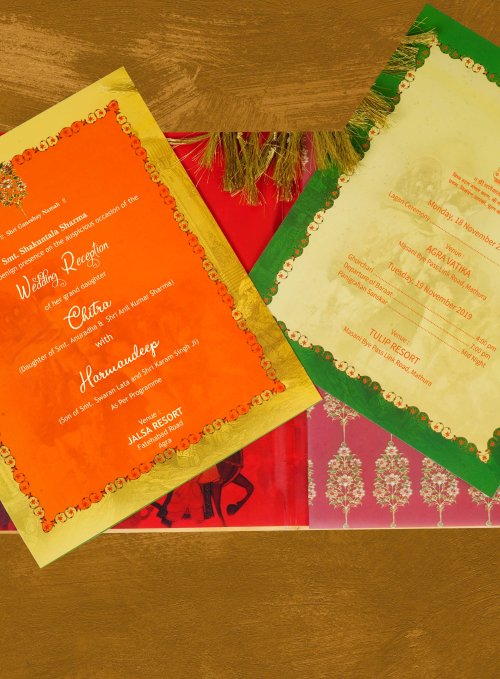 ॥ Shri Ganeshay Namah ॥
Smt. Shakuntala Sharma
benign presence on the auspicious occasion of the
Wedding Reception
of her grand daughter
Chitra
(Daughter of Smt. Anuradha & Shri Anil Kumar Sharma)
with
Harmandeep
(Son of Smt. Swaran Lata and Shri Karam Singh Ji)
As Per Programme
Venue :
JALSA RESORT
Fatehabad Road
Agra
Monday, 18 November 2
Lagan Ceremony
Venue :
AGRA VATIKA
Masani Bye Pass Link Road, Mathura
Tuesday, 19 November 2019
Ghurchari 4:00 pm
Departure of Baraat 7:00 pm
Panigrahan Sanskar Mid Night
Venue :
TULIP RESORT
Masani Bye Pass Link Road, Mathura